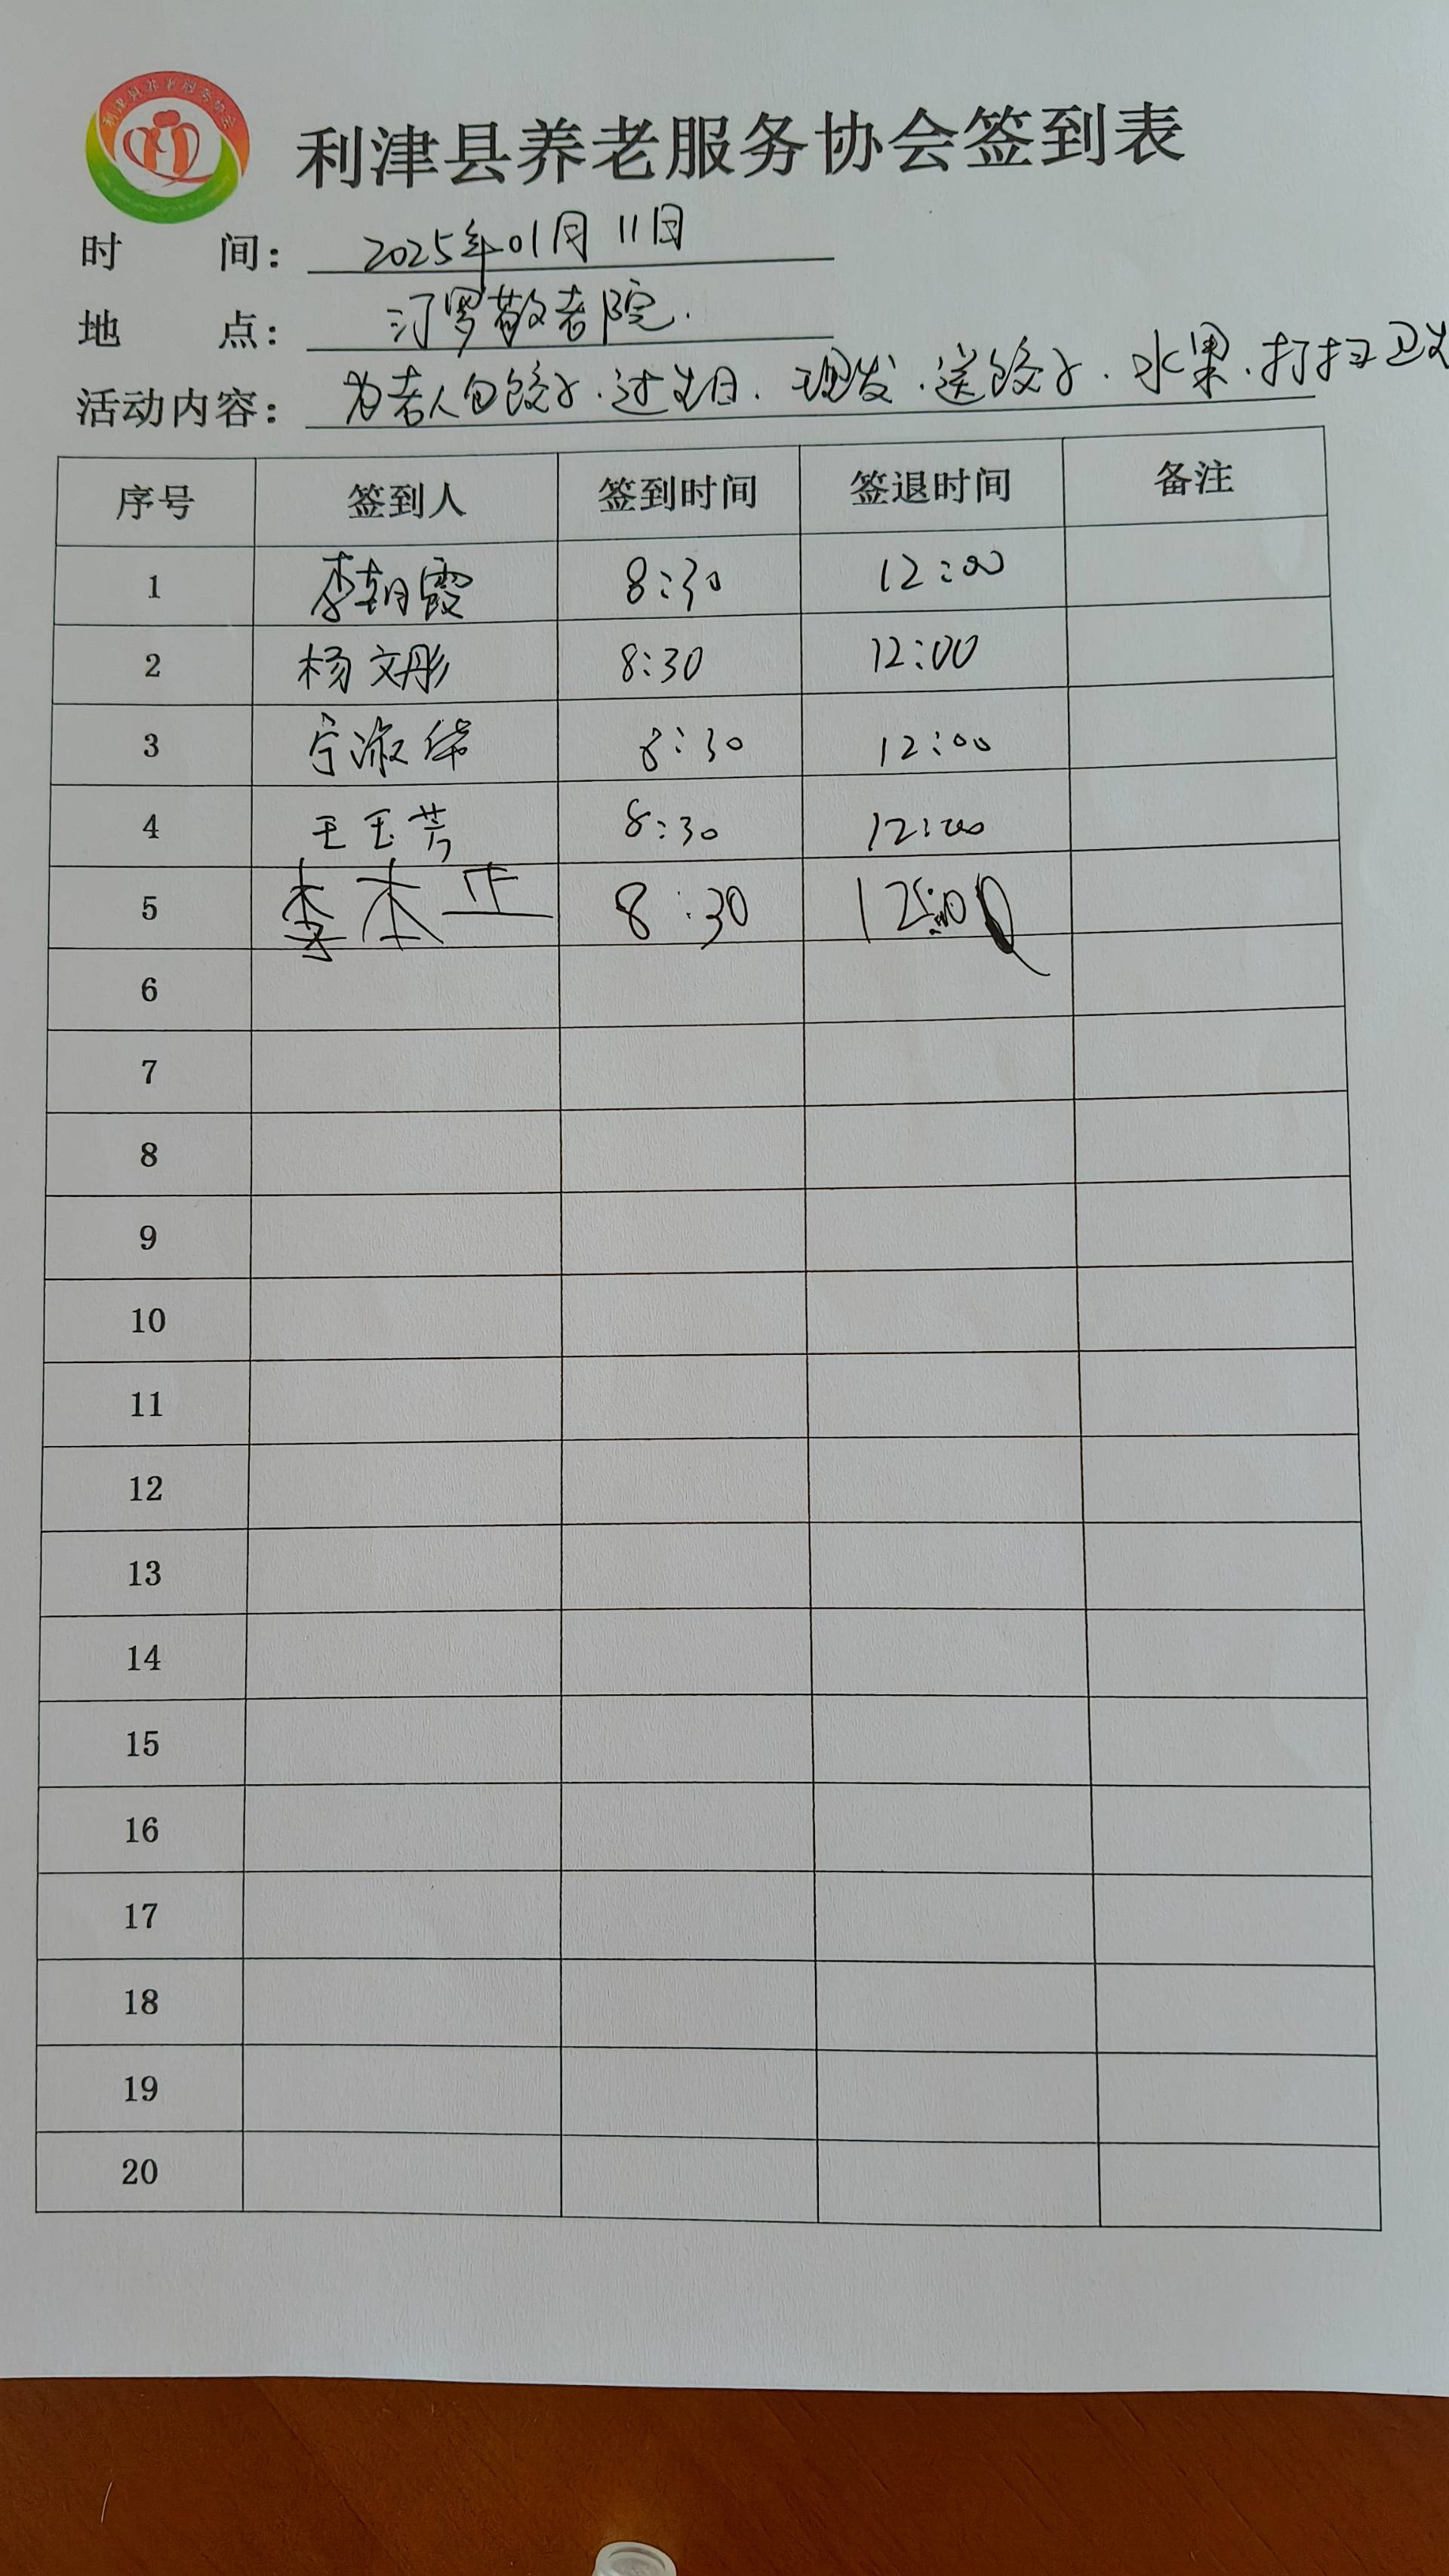 利津县养老服务协会
利津县养老服务协会签到表
时 间： 2025年01月11日
地 点： 汀罗敬老院.
活动内容： 为老人包饺子.过生日.理发.送饺子.水果.打扫卫生
序号 签到人 签到时间 签退时间 备注
1 李朝霞 8:30 12:00
2 杨文彤 8:30 12:00
3 宁淑华 8:30 12:00
4 王玉芳 8:30 12:00
5 李本正 8:30 12:00
6
7
8
9
10
11
12
13
14
15
16
17
18
19
20